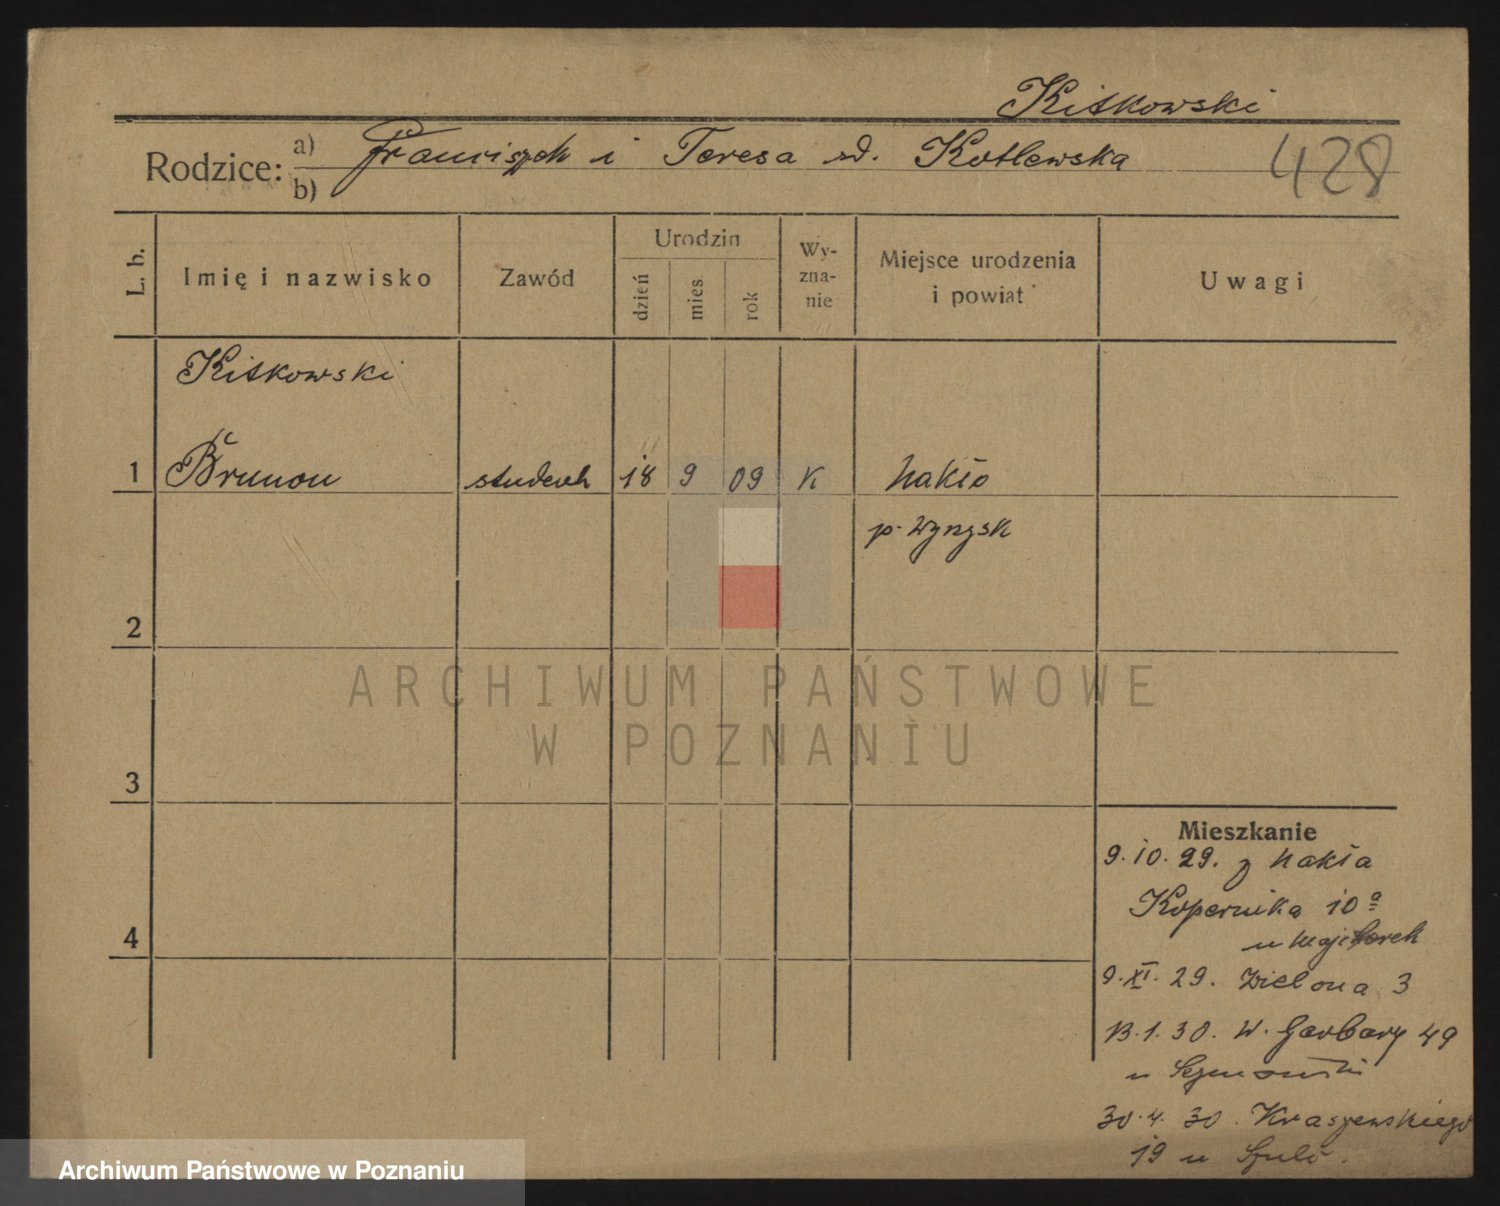 Kitkowski
Rodzice: a) Franciszek i Teresa zd. Kotlewska
b)
428
L. b.
Imię i nazwisko
Zawód
Urodzin
dzień
mies
rok
Wy-
zna-
nie
Miejsce urodzenia
i powiat
Uwagi
Kitkowski
1 Brunon student 18 9 09 K Nakło
p. Wyrzysk
2
3
4
ARCHIWUM PAŃSTWOWE
W POZNANIU
Mieszkanie
9.10.29. z Nakła
Kopernika 10a
u
9.XI.29. Zielona 3
13.1.30. W. Garbary 49
u
30.4.30. Kraszewskiego
19 u
Archiwum Państwowe w Poznaniu